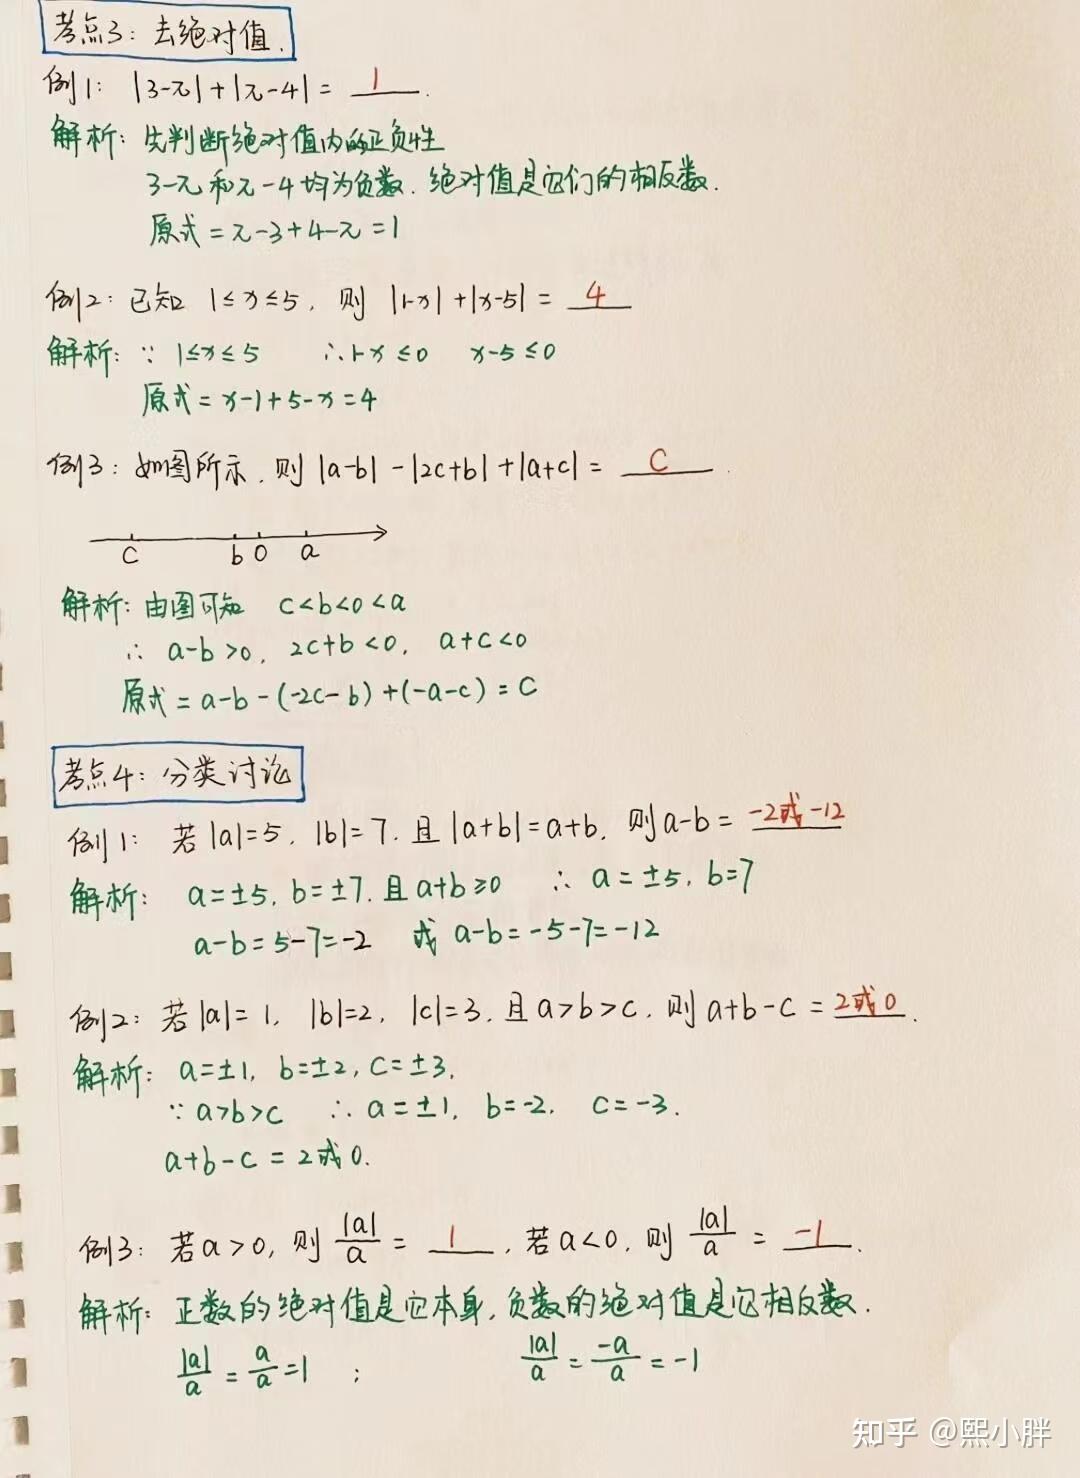 考点3：去绝对值.
例1： |3-π|+|π-4| = 1 .
解析：先判断绝对值内的正负性
3-π和π-4均为负数.绝对值是它们的相反数.
原式=π-3+4-π=1
例2：已知 1≤x≤5，则 |1-x|+|x-5| = 4
解析：∵ 1≤x≤5 ∴1-x≤0 x-5≤0
原式=x-1+5-x=4
例3：如图所示.则|a-b|-|2c+b|+|a+c|= C .
c b 0 a
解析：由图可知 c<b<0<a
∴ a-b>0, 2c+b<0, a+c<0
原式=a-b-(-2c-b)+(-a-c)=C
考点4：分类讨论
例1：若|a|=5, |b|=7.且|a+b|=a+b.则a-b= -2或-12
解析：a=±5, b=±7.且a+b≥0 ∴ a=±5, b=7
a-b=5-7=-2 或 a-b=-5-7=-12
例2：若|a|=1, |b|=2, |c|=3.且a>b>c.则a+b-c=2或0.
解析：a=±1, b=±2, c=±3.
∵a>b>c ∴a=±1, b=-2, c=-3.
a+b-c=2或0.
例3：若a>0，则|a|/a= 1 ，若a<0，则|a|/a= -1 .
解析：正数的绝对值是它本身,负数的绝对值是它相反数.
|a|/a=a/a=1 ; |a|/a=-a/a=-1
知乎 @熙小胖